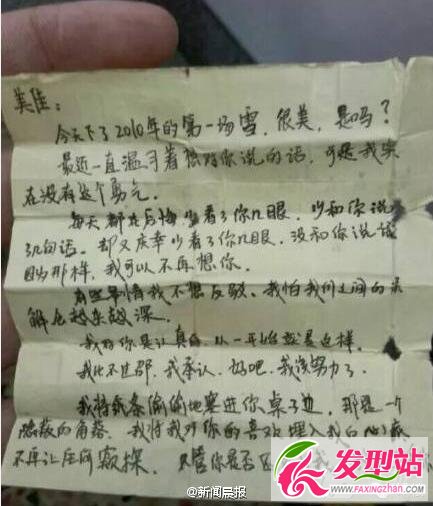 美佳：
今天下了2010年的第一场雪，很美，是吗？
最近一直温习着想对你说的话，可是我实
在没有这个勇气。
每天都在后悔少看了你几眼，少和你说
了几句话。却又庆幸少看了你几眼，没和你说话
因为那样，我可以不再想你。
有些事情我不想反驳。我怕我们之间的误
解会越来越深。
我对你是认真的，从一开始就是这样。
我比不过那，我承认，好吧，我该努力了。
我将纸条偷偷地塞进你桌子边，那是一个
隐蔽的角落。我将我对你的喜欢埋入我
不再让任何窥探。只管你是否
@新闻晨报
发型站
WWW.FAXINGZHAN.COM